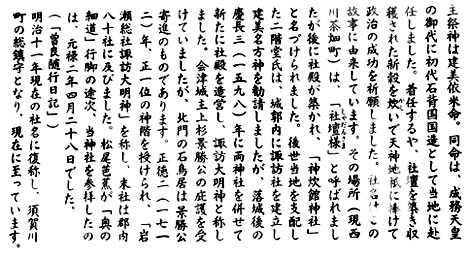 主祭神は建美依米命。同命は、成務天皇
の御代に初代石背国国造として当地に赴
任しました。着任するや、社壇を築き収
穫された新穀を炊いで天神地祇に捧げて
政治の成功を祈願しました。社名は、この
故事に由来しています。その場所(現西
川茶畑町)は、「社壇様」と呼ばれまし
たが後に社殿が築かれ、「神炊館神社」
と名づけられました。後世当地を支配し
た二階堂氏は、城郭内に諏訪社を建立し
建美名方神を勧請しましたが、落城後の
慶長三(一五九八)年に両神社を併せて
新たに社殿を造営し、諏訪大明神と称し
ました。会津城主上杉景勝公の庇護を受
けていましたが、北門の石鳥居は景勝公
寄進のものであります。正徳二(一七一
二)年、正一位の神階を授けられ、「岩
瀬総社諏訪大明神」を称し、末社は郡内
八十社に及びました。松尾芭蕉が「奥の
細道」行脚の途次、当神社を参拝したの
は、元禄二年四月二十八日でした。
(「曽良随行日記」)
明治十一年現在の社名に復称し、須賀川
町の総鎮守となり、現在に至っています。